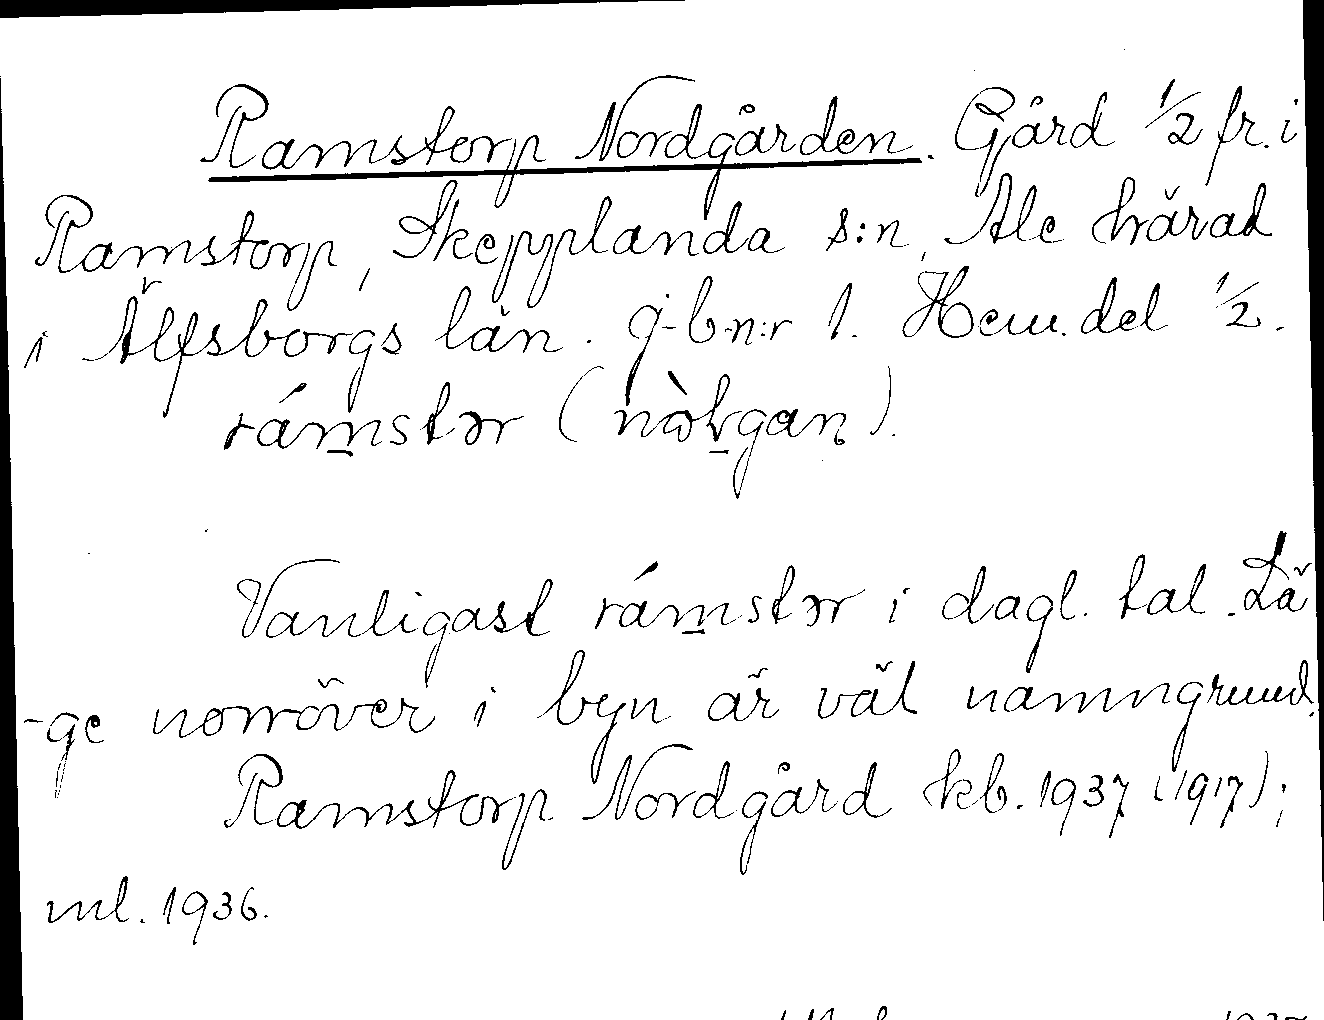 Ramstorp Nordgården. Gård 1/2 fr. i
Ramstorp, Skepplanda s:n, Ale härad
i Älfsborgs län. g-b-n:r 1. Hem. del 1/2.
rámstər (
Vanligast rámstər i dagl. tal. Lä
-ge norröver i byn är väl namngrund.
Ramstorp Nordgård kb. 1937 (1917);
ml. 1936.